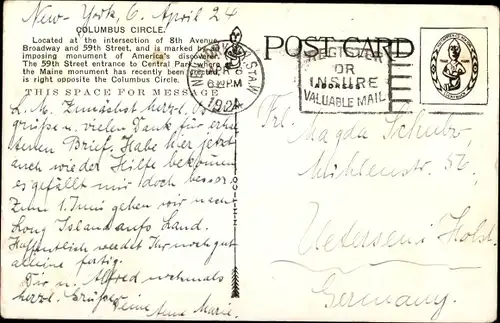 New-York, 6. April 24
COLUMBUS CIRCLE.
Located at the intersection of 8th Avenue,
Broadway and 59th Street, and is marked by an
imposing monument of America's discoverer.
The 59th Street entrance to Central Park, where
the Maine monument has recently been erected,
is right opposite the Columbus Circle.
THIS SPACE FOR MESSAGE
L. M. Zunächst herzl.
grüsse u. vielen Dank für
Brief. Habe hier jetzt
auch wieder Hilfe bekommen
es gefällt mir doch besser.
Zum 1. Juni gehen wir nach
Long Island aufs Land.
Hoffentlich werdet Ihr noch gut
alleine fertig.
Dir u. Alfred nochmals
herzl. Grüsse
Deine Anne Marie.
POST CARD
N.Y.
6 PM
1924
REGISTER
OR
INSURE
VALUABLE MAIL
ADDRESS
Frl. Magda Schulz,
Mühlenstr. 56,
Uetersen i Holst.
Germany.